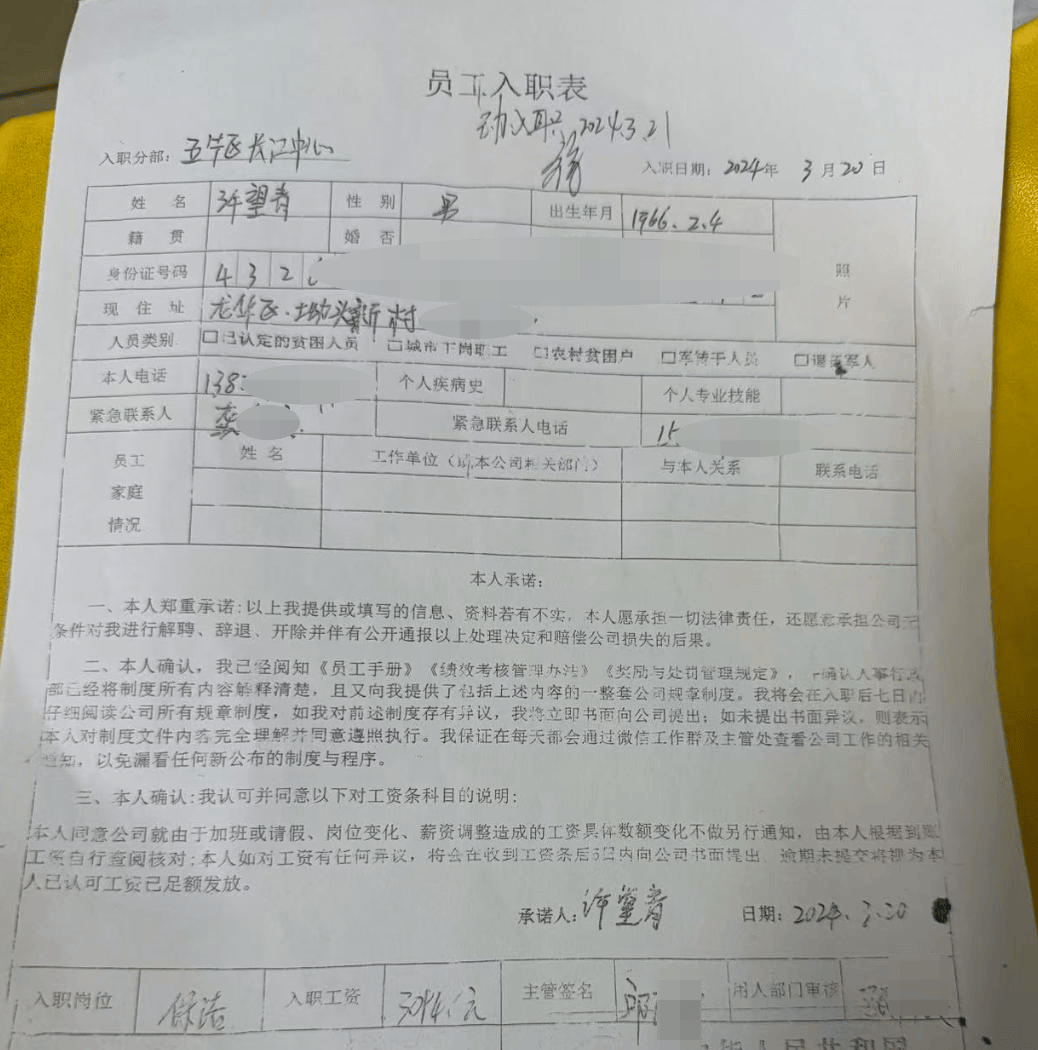 员工入职表
2024.3.21
入职分部: 五华区长江中心
入职日期: 2024年 3月20日
姓 名 许望青 性 别 男 出生年月 1966.2.4
籍 贯 婚 否
照
身份证号码 4 3 2
片
现 住 址 龙华区.坳头新村
人员类别 □已认定的贫困人员 □城市下岗职工 □农村贫困户 □军转干人员 □退伍军人
本人电话 138 个人疾病史 个人专业技能
紧急联系人 紧急联系人电话 15
员工 姓 名 工作单位(或本公司相关部门) 与本人关系 联系电话
家庭
情况
本人承诺:
一、本人郑重承诺:以上我提供或填写的信息、资料若有不实,本人愿承担一切法律责任,还愿意承担公司无
条件对我进行解聘、辞退、开除并伴有公开通报以上处理决定和赔偿公司损失的后果。
二、本人确认,我已经阅知《员工手册》《绩效考核管理办法》《奖励与处罚管理规定》,确认人事行政
部已经将制度所有内容解释清楚,且又向我提供了包括上述内容的一整套公司规章制度。我将会在入职后七日内
仔细阅读公司所有规章制度,如我对前述制度存有异议,我将立即书面向公司提出;如未提出书面异议,则表示
本人对制度文件内容完全理解并同意遵照执行。我保证在每天都会通过微信工作群及主管处查看公司工作的相关
通知,以免漏看任何新公布的制度与程序。
三、本人确认:我认可并同意以下对工资条科目的说明:
本人同意公司就由于加班或请假、岗位变化、薪资调整造成的工资具体数额变化不做另行通知,由本人根据到账
工资自行查阅核对;本人如对工资有任何异议,将会在收到工资条后5日内向公司书面提出、逾期未提交将视为本
人已认可工资已足额发放。
承诺人: 许望青 日期: 2024.3.20
入职岗位 保洁 入职工资 元 主管签名 邱 用人部门审核
人民共和国